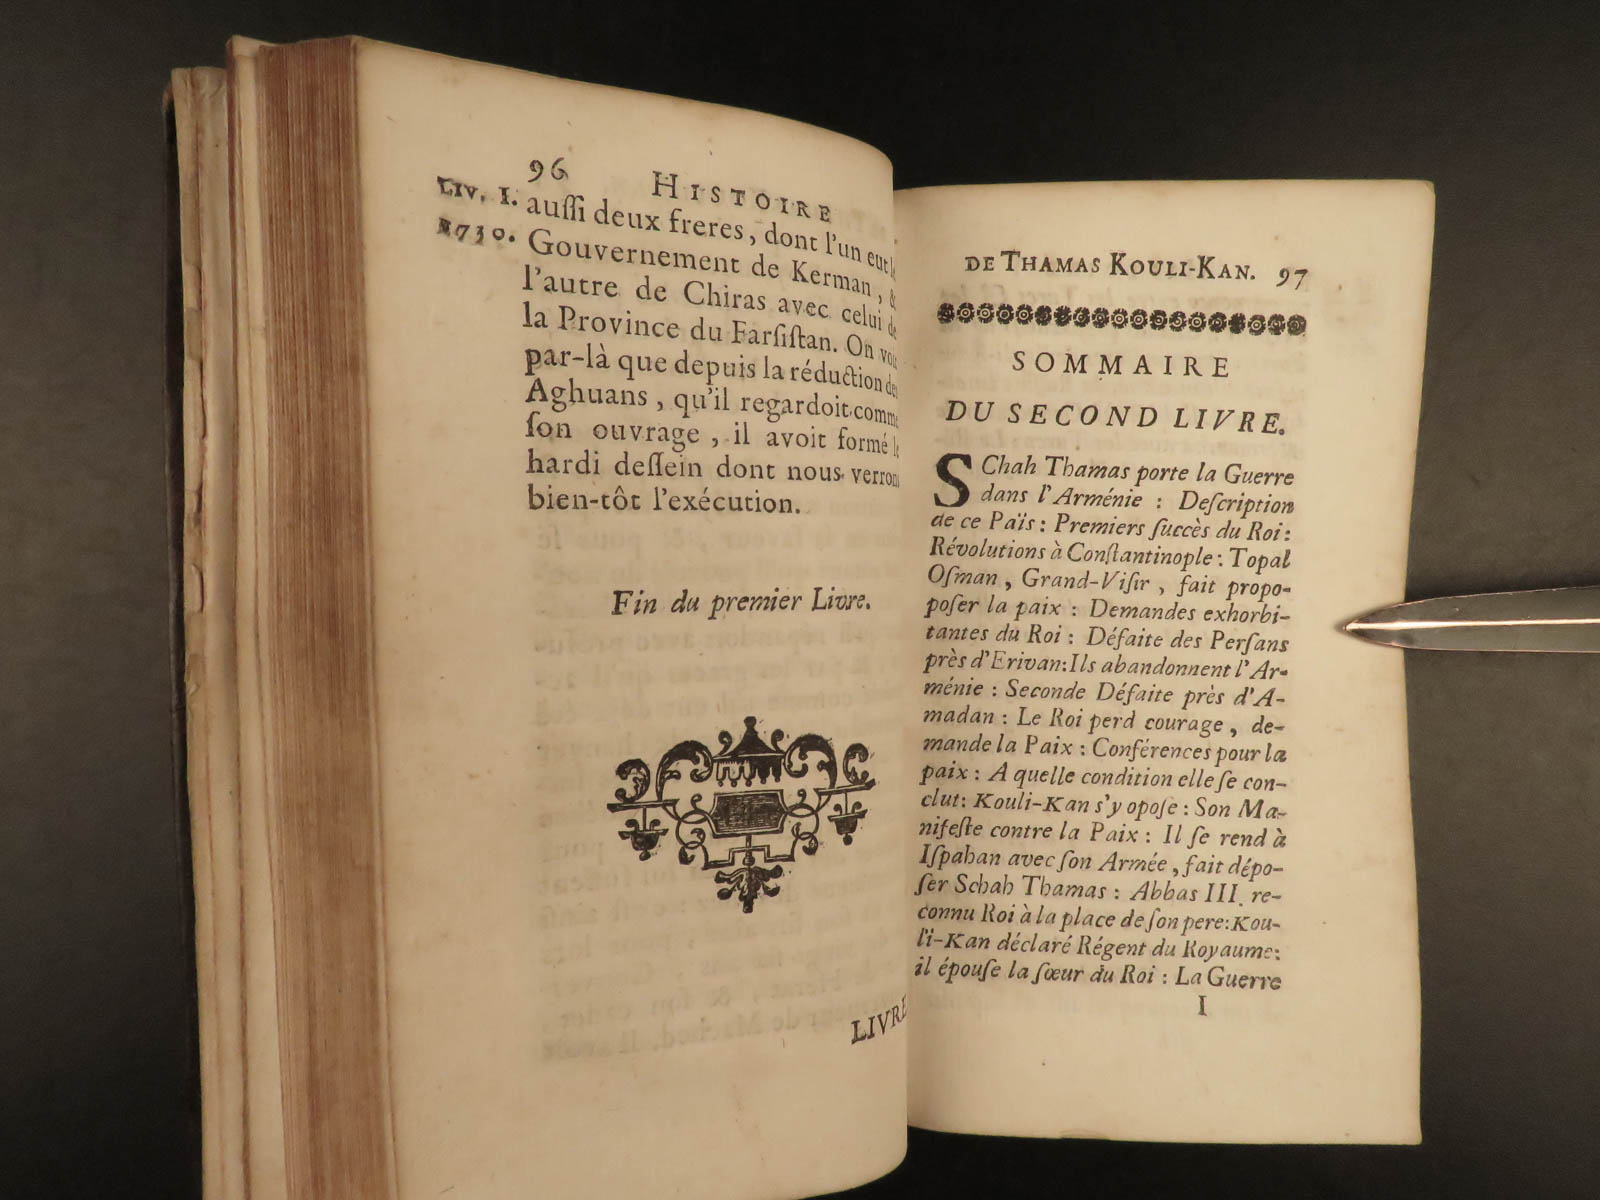 96 HISTOIRE
LIV. I. auſſi deux freres, dont l'un eut le
1730. Gouvernement de Kerman, &
l'autre de Chiras avec celui de
la Province du Farſiſtan. On voit
par-là que depuis la réduction des
Aghuans, qu'il regardoit comme
ſon ouvrage, il avoit formé le
hardi deſſein dont nous verrons
bien-tôt l'exécution.
Fin du premier Livre.
LIVRE
DE THAMAS KOULI-KAN. 97
SOMMAIRE
DU SECOND LIVRE.
SChah Thamas porte la Guerre
dans l'Arménie : Deſcription
de ce Païs : Premiers ſuccès du Roi :
Révolutions à Conſtantinople : Topal
Oſman, Grand-Viſir, fait propo-
poſer la paix : Demandes exhorbi-
tantes du Roi : Défaite des Perſans
près d'Erivan : Ils abandonnent l'Ar-
ménie : Seconde Défaite près d'A-
madan : Le Roi perd courage, de-
mande la Paix : Conférences pour la
paix : A quelle condition elle ſe con-
clut : Kouli-Kan s'y opoſe : Son Ma-
nifeſte contre la Paix : Il ſe rend à
Iſpahan avec ſon Armée, fait dépo-
ſer Schah Thamas : Abbas III. re-
connu Roi à la place de ſon pere : Kou-
li-Kan déclaré Régent du Royaume :
il épouſe la ſœur du Roi : La Guerre
I